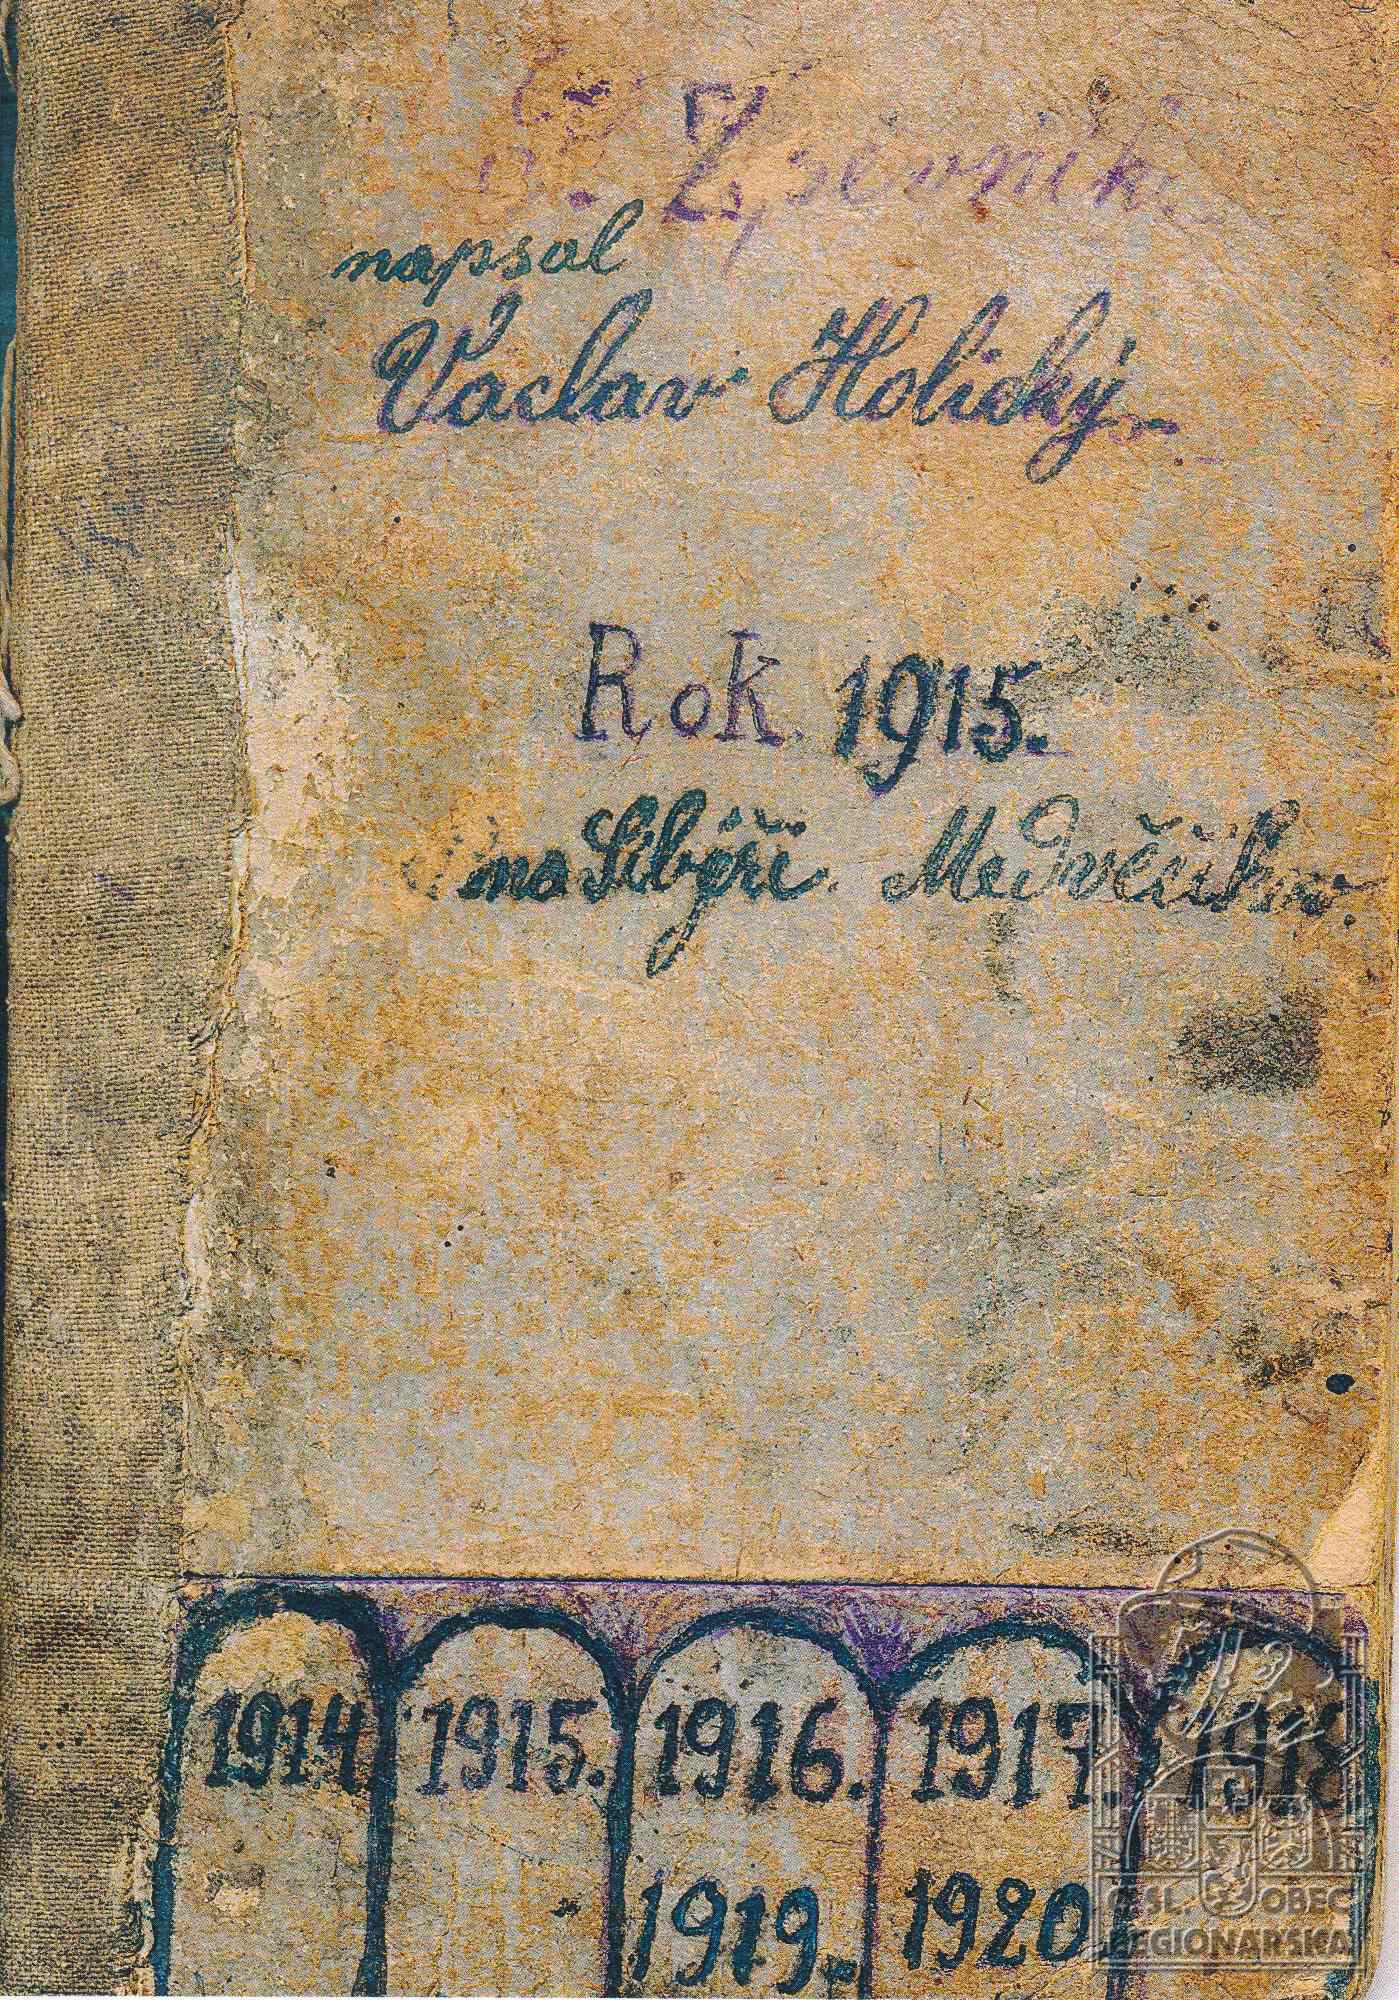 Zpěvník
napsal
Václav Holický
Rok. 1915.
na Sibyři.
1914 1915. 1916. 1917. 1918
1919. 1920
ČSL. OBEC
LEGIONÁŘSKÁ